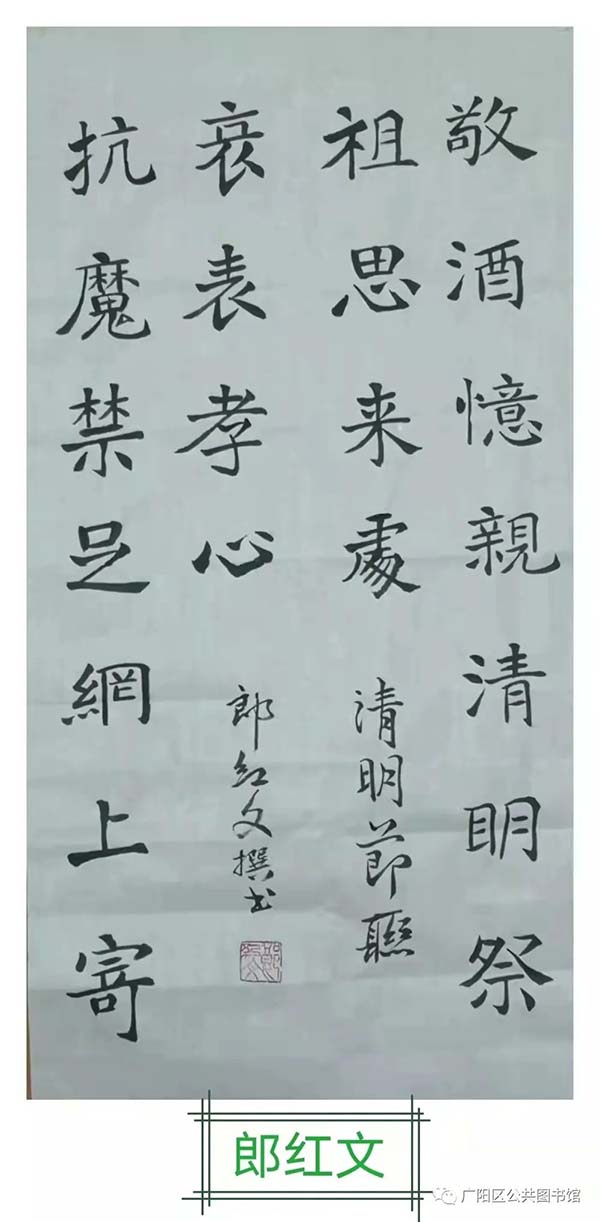 敬酒憶親清明祭
祖思来處
清明節聯
抗魔禁足網上寄
哀表孝心
郎红文撰书
郎红文
广阳区公共图书馆